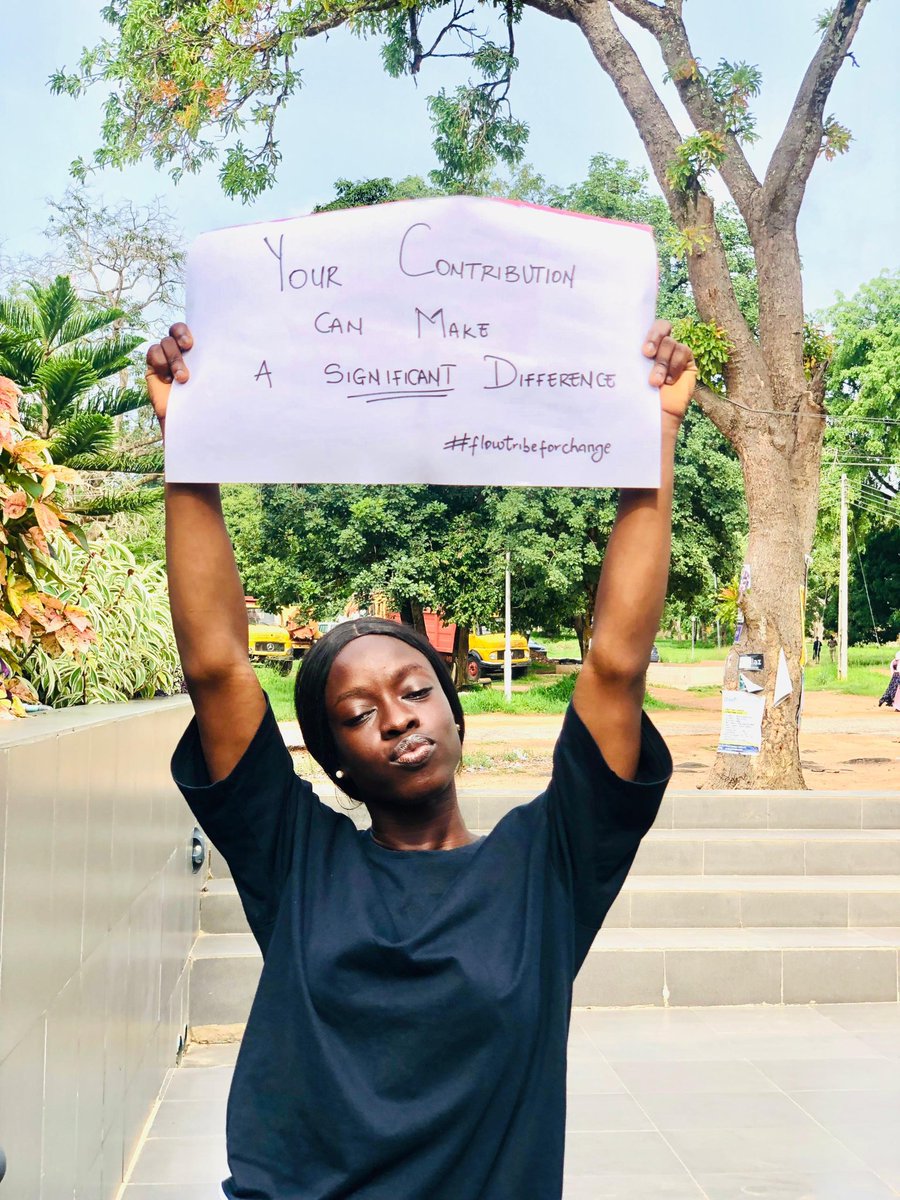 Your Contribution
can Make
a Significant Difference
#flowtribeforchange